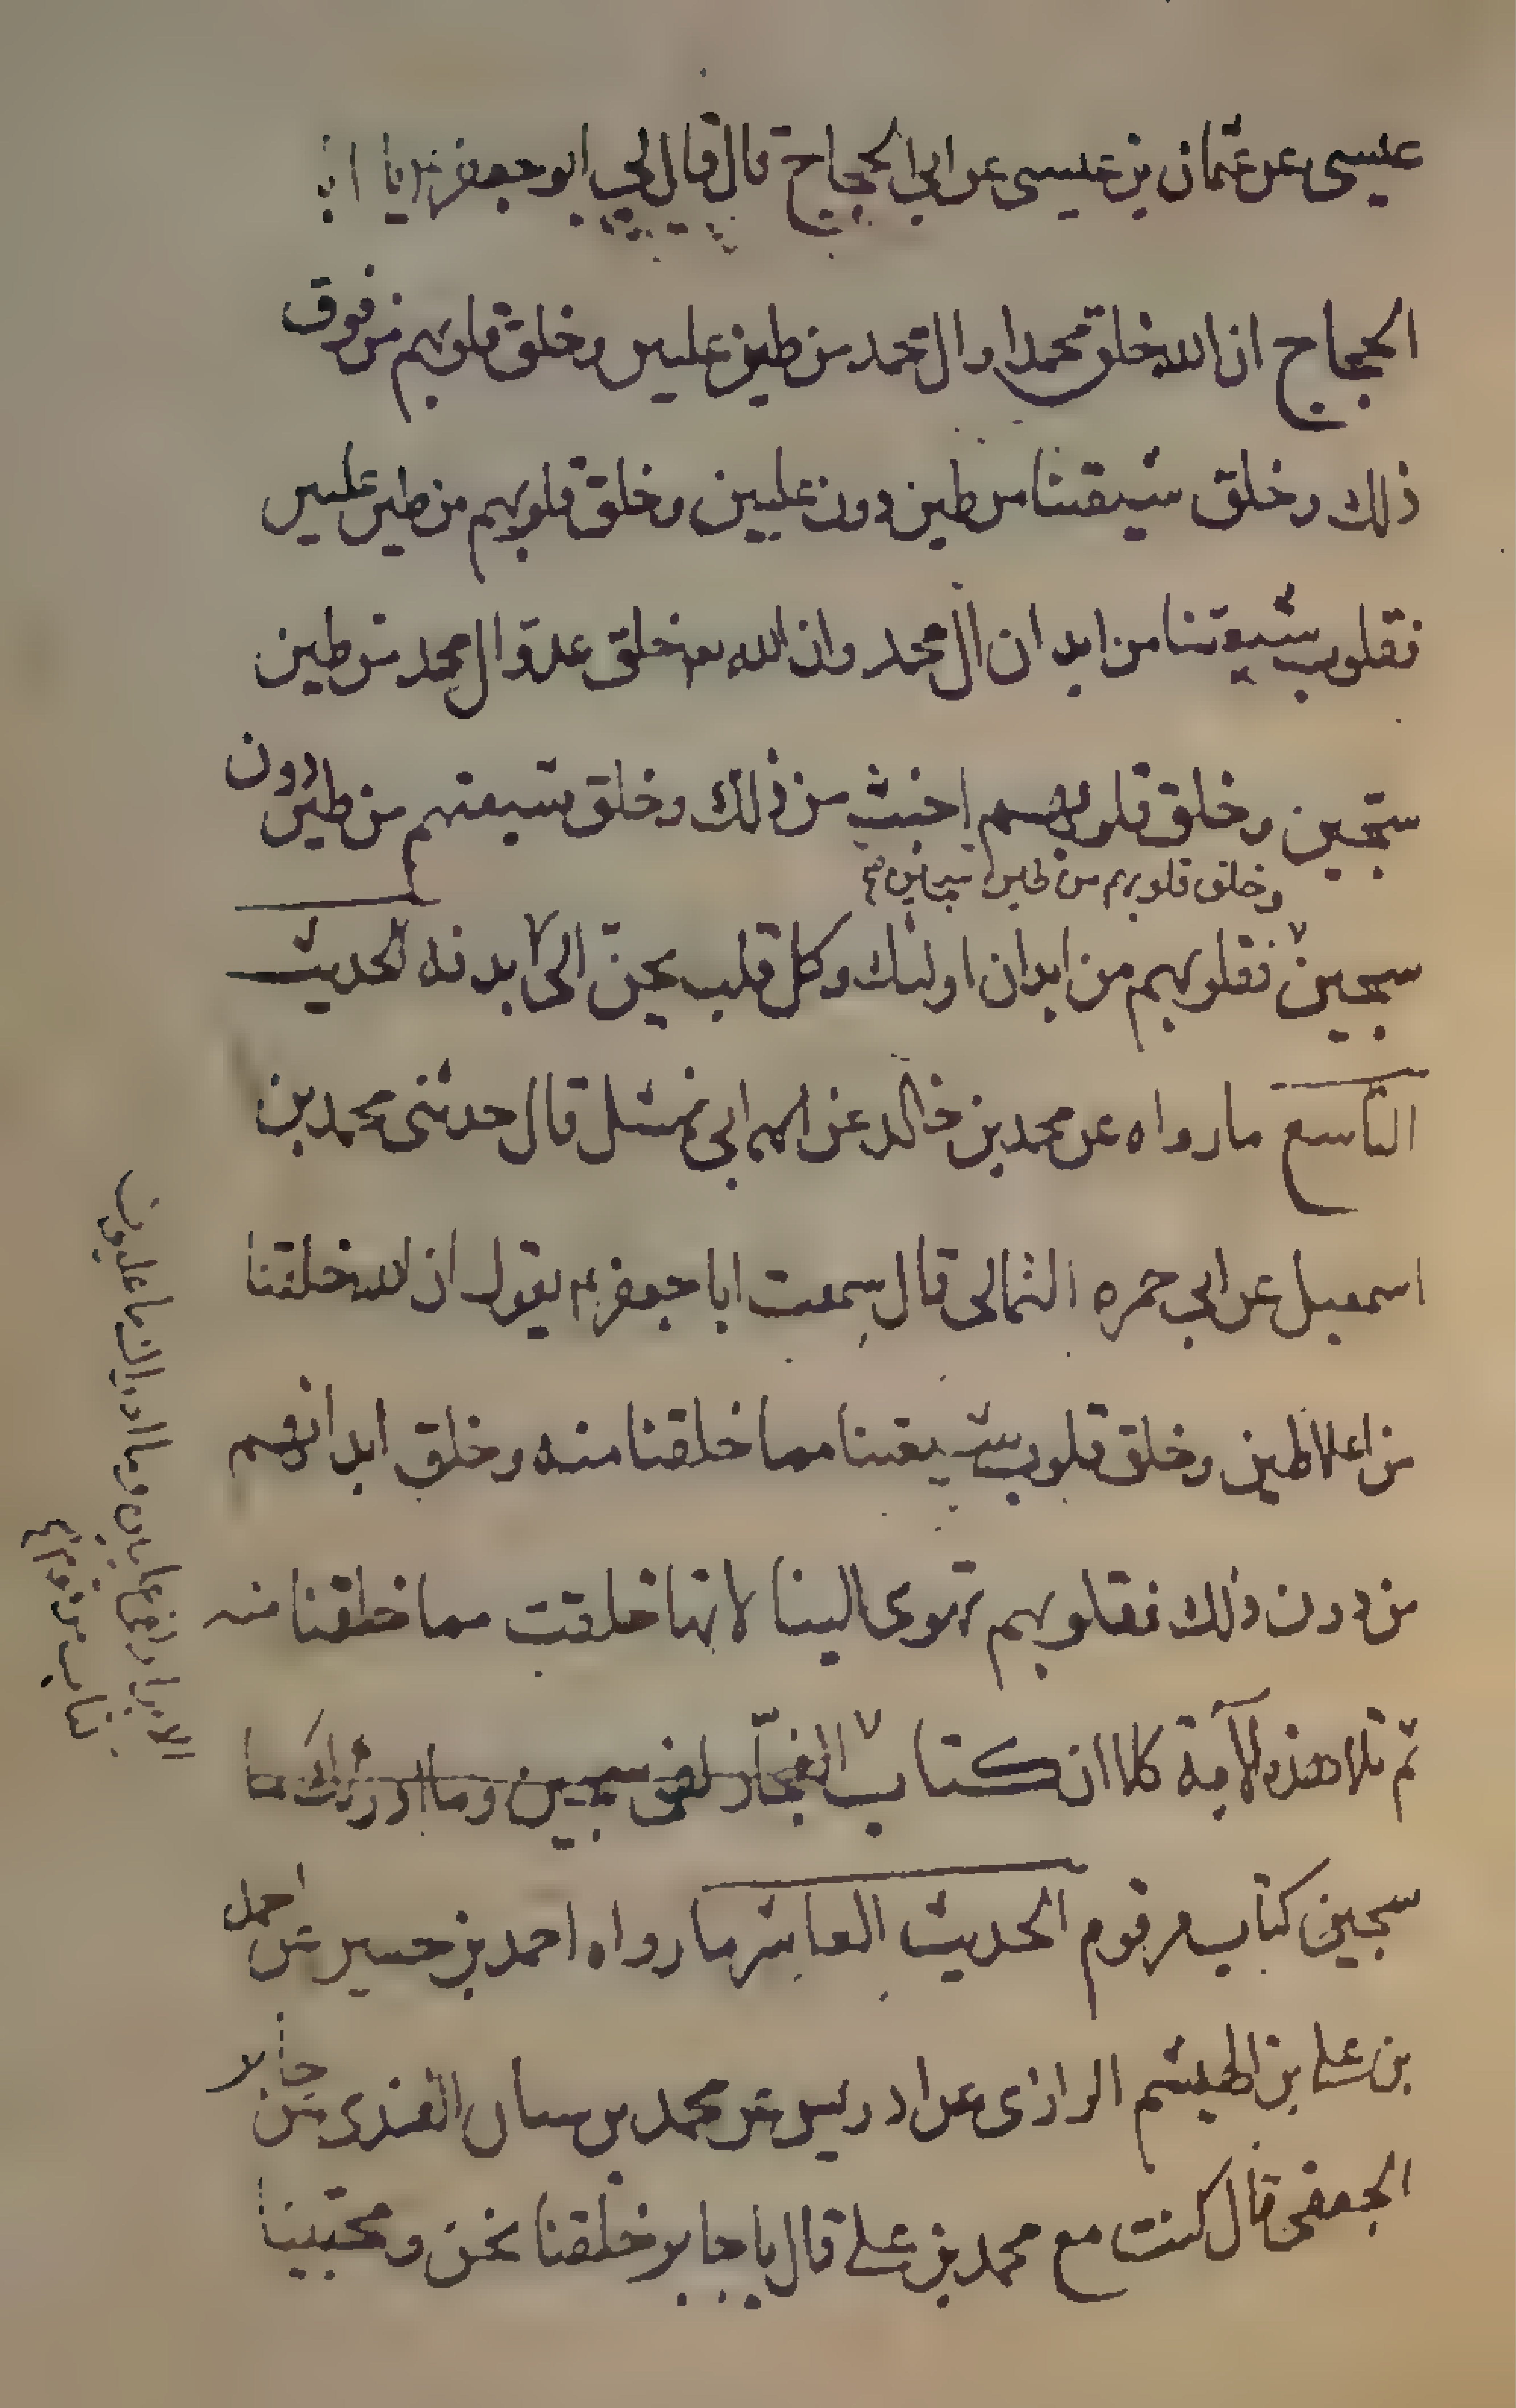 عيسى عن عثمان بن عيسى عن ابي الحجاج قال قال لي ابو جعفر ع يا ابا
الحجاج ان الله خلق محمدا وال محمد من طين عليين وخلق قلوبهم من فوق
ذلك وخلق شيعتنا من طين دون عليين وخلق قلوبهم من طين عليين
فقلوب شيعتنا من ابدان ال محمد وان الله تعالى خلق عدو ال محمد من طين
سجين وخلق قلوبهم اخبث من ذلك وخلق شيعتهم من طين دون
وخلق قلوبهم من طين سجين صح
سجين فقلوبهم من ابدان اولئك وكل قلب يحن الى بدنه الحديث
التاسع ما رواه عن محمد بن خالد عن ابي نهشل قال حدثنى محمد بن
اسمعيل عن ابي حمزه الثمالى قال سمعت ابا جعفر ع يقول ان الله خلقنا
من اعلا عليين وخلق قلوب شيعتنا مما خلقنا منه وخلق ابدانهم
من دون ذلك فقلوبهم تهوى الينا لانها خلقت مما خلقنا منه
ثم تلا هذه الآية كلا ان كتاب الفجّار لفى سجين وما ادراك ما
سجين كتاب مرقوم الحديث العاشر ما رواه احمد بن حسين عن احمد
بن علي بن الهيثم الرازى عن ادريس عن محمد بن سنان العبدى عن جابر
الجعفى قال كنت مع محمد بن علي قال يا جابر خلقنا نحن ومحبّينا
الابرار لفي عليين وما ادراك ما عليون
كتاب مرقوم